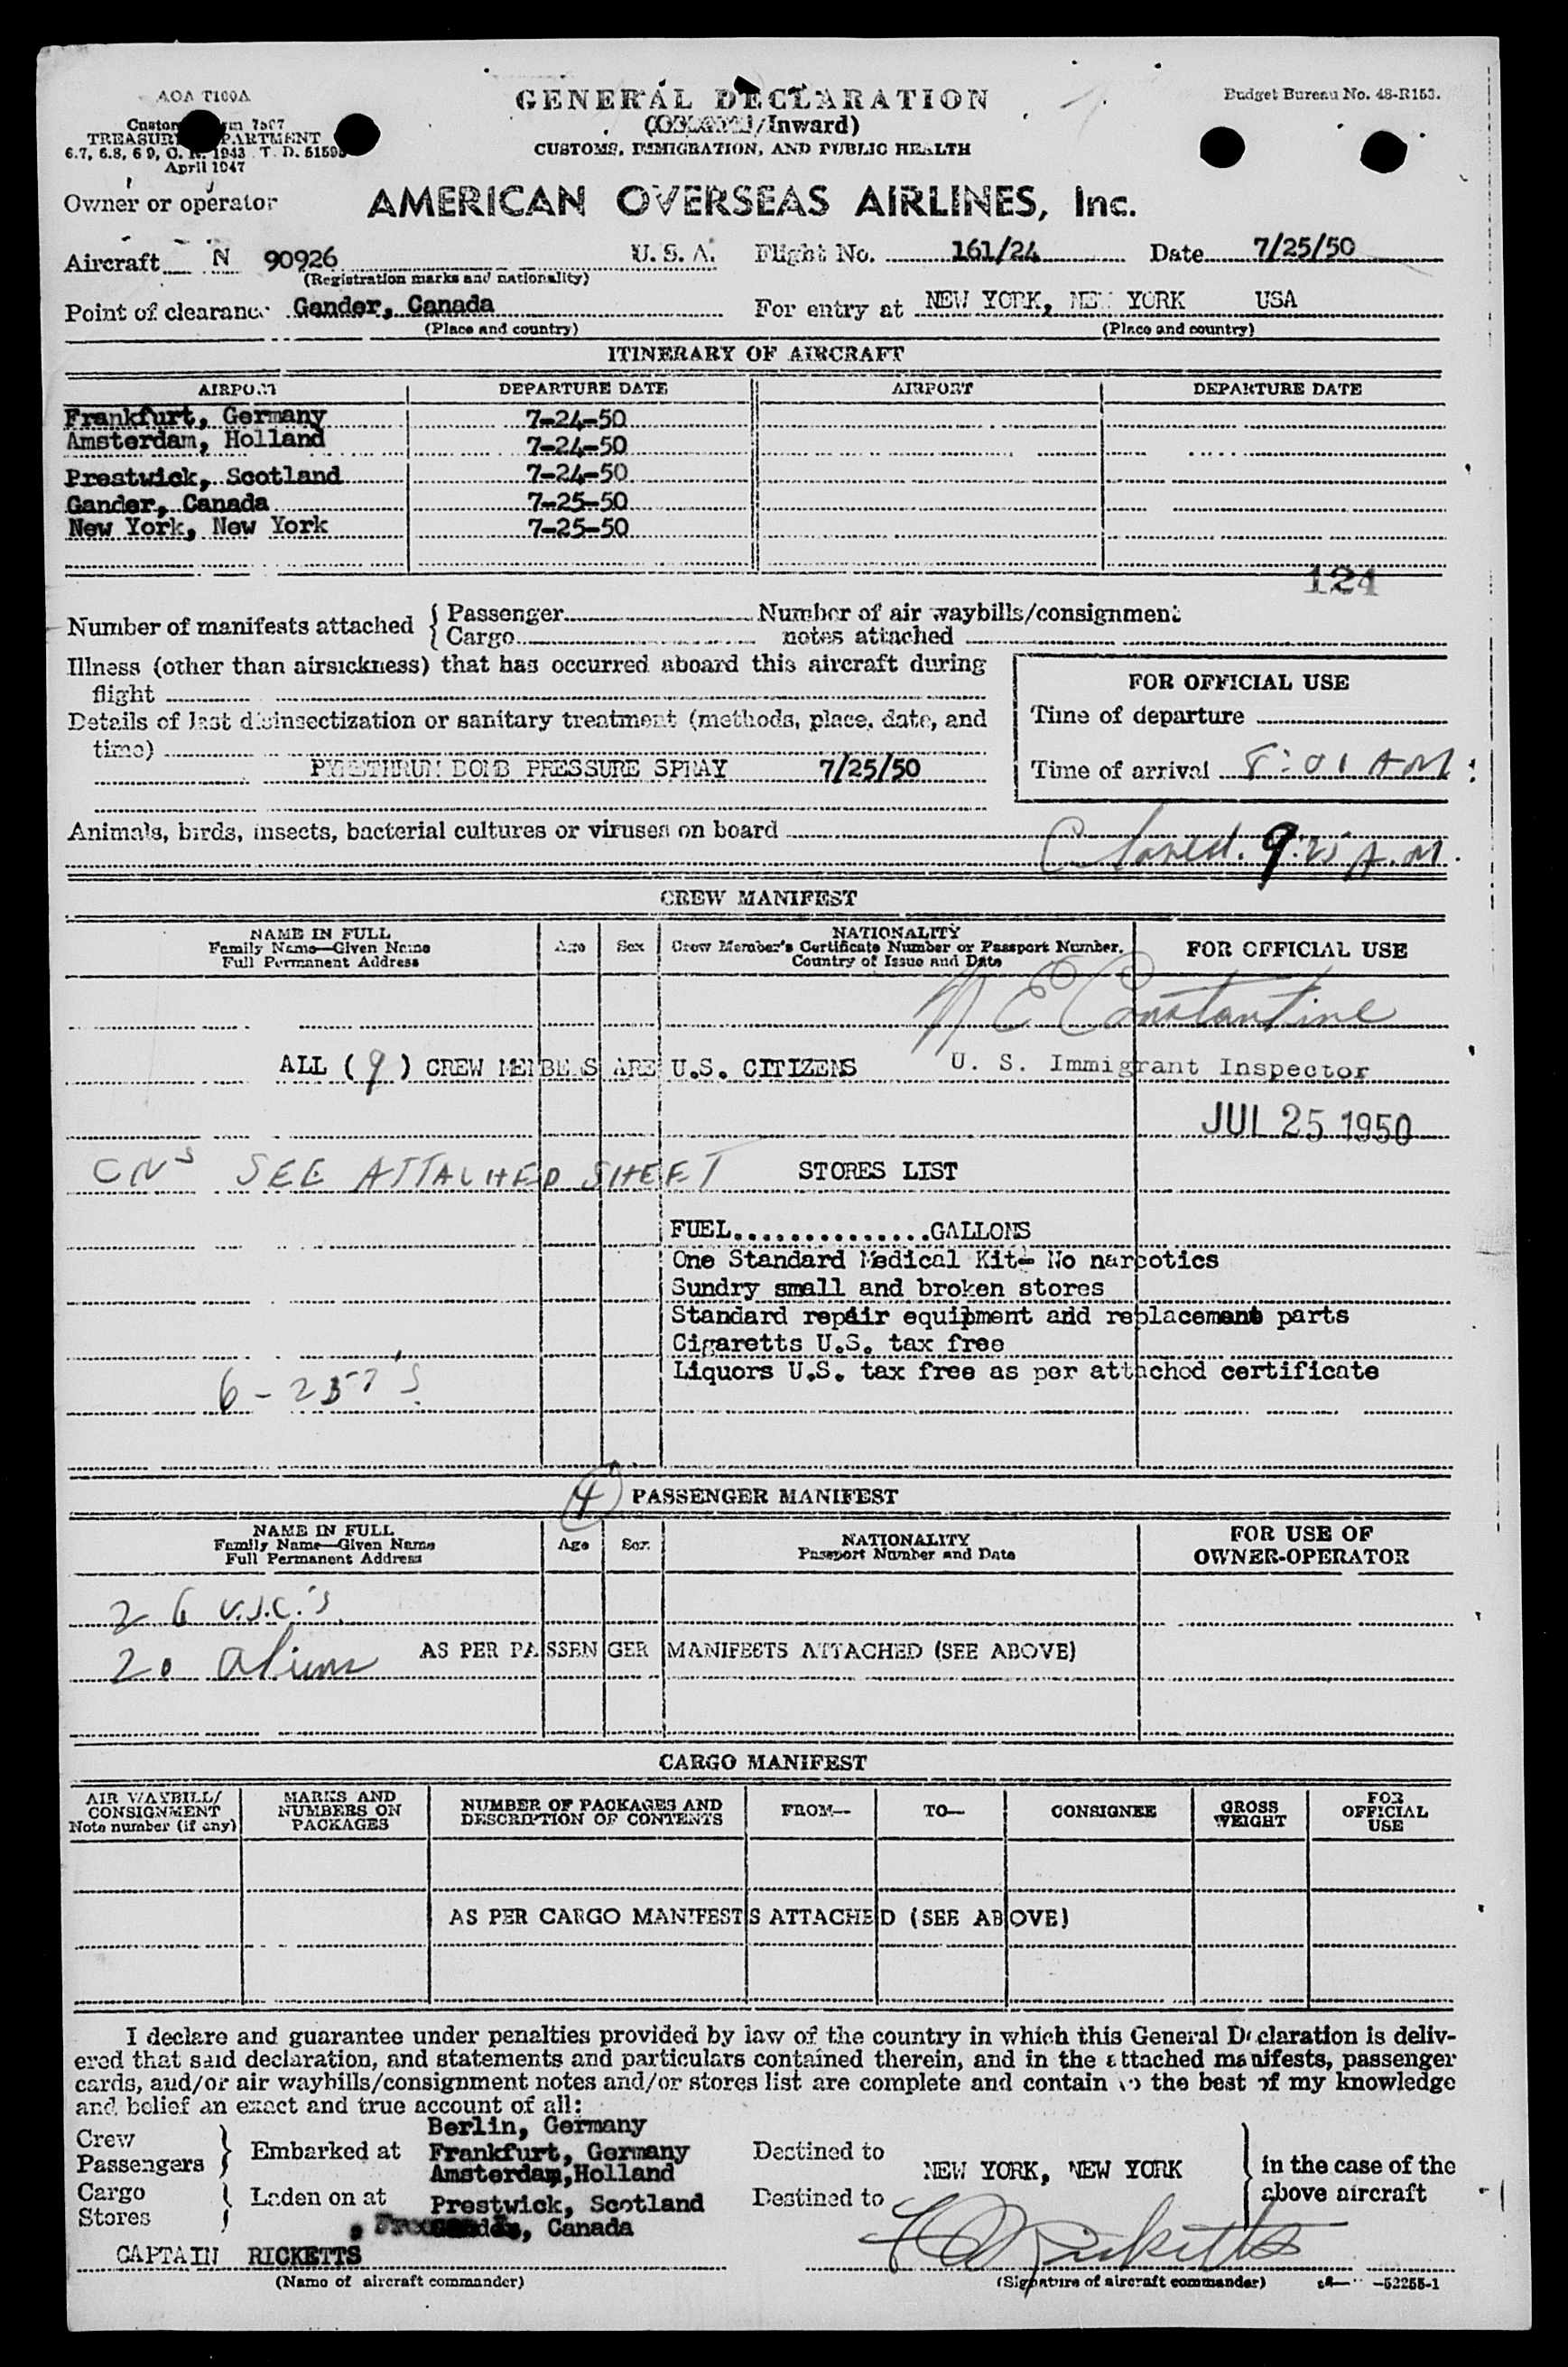 AOA T100A
GENERAL DECLARATION
Budget Bureau No. 48-R153.
(/Inward)
TREASURY DEPARTMENT
CUSTOMS, IMMIGRATION, AND PUBLIC HEALTH
April 1947
Owner or operator AMERICAN OVERSEAS AIRLINES, Inc.
Aircraft N 90926 U. S. A. Flight No. 161/24 Date 7/25/50
(Registration marks and nationality)
Point of clearance Gander, Canada For entry at NEW YORK, NEW YORK USA
(Place and country) (Place and country)
ITINERARY OF AIRCRAFT
AIRPORT DEPARTURE DATE AIRPORT DEPARTURE DATE
Frankfurt, Germany 7-24-50
Amsterdam, Holland 7-24-50
Prestwick, Scotland 7-24-50
Gander, Canada 7-25-50
New York, New York 7-25-50
124
Number of manifests attached { Passenger Number of air waybills/consignment
{ Cargo notes attached
Illness (other than airsickness) that has occurred aboard this aircraft during
flight
FOR OFFICIAL USE
Details of last disinsectization or sanitary treatment (methods, place, date, and
time)
Time of departure
PYRETHRUM BOMB PRESSURE SPRAY 7/25/50
Time of arrival 8:01 AM
Animals, birds, insects, bacterial cultures or viruses on board
9:25 A.M.
CREW MANIFEST
NAME IN FULL
Family Name—Given Name
Full Permanent Address
Age
Sex
NATIONALITY
Crew Member's Certificate Number or Passport Number.
Country of Issue and Date
FOR OFFICIAL USE
N E Constantine
ALL (9) CREW MEMBERS ARE U.S. CITIZENS
U. S. Immigrant Inspector
JUL 25 1950
CNs SEE ATTACHED SHEET
STORES LIST
FUEL...............GALLONS
One Standard Medical Kit- No narcotics
Sundry small and broken stores
Standard repair equipment and replacement parts
Cigaretts U.S. tax free
Liquors U.S. tax free as per attached certificate
6 - 257's
4
PASSENGER MANIFEST
NAME IN FULL
Family Name—Given Name
Full Permanent Address
Age
Sex
NATIONALITY
Passport Number and Date
FOR USE OF
OWNER-OPERATOR
26 U.S.C.'s
20 aliens
AS PER PASSENGER MANIFESTS ATTACHED (SEE ABOVE)
CARGO MANIFEST
AIR WAYBILL/
CONSIGNMENT
Note number (if any)
MARKS AND
NUMBERS ON
PACKAGES
NUMBER OF PACKAGES AND
DESCRIPTION OF CONTENTS
FROM—
TO—
CONSIGNEE
GROSS
WEIGHT
FOR
OFFICIAL
USE
AS PER CARGO MANIFESTS ATTACHED (SEE ABOVE)
I declare and guarantee under penalties provided by law of the country in which this General Declaration is deliv-
ered that said declaration, and statements and particulars contained therein, and in the attached manifests, passenger
cards, and/or air waybills/consignment notes and/or stores list are complete and contain to the best of my knowledge
and belief an exact and true account of all:
Crew
Passengers
Cargo
Stores
Embarked at
Laden on at
Berlin, Germany
Frankfurt, Germany
Amsterdam,Holland
Prestwick, Scotland
Gander, Canada
Destined to
Destined to
NEW YORK, NEW YORK
in the case of the
above aircraft
CAPTAIN RICKETTS
(Name of aircraft commander)
Ricketts
(Signature of aircraft commander)
-52255-1